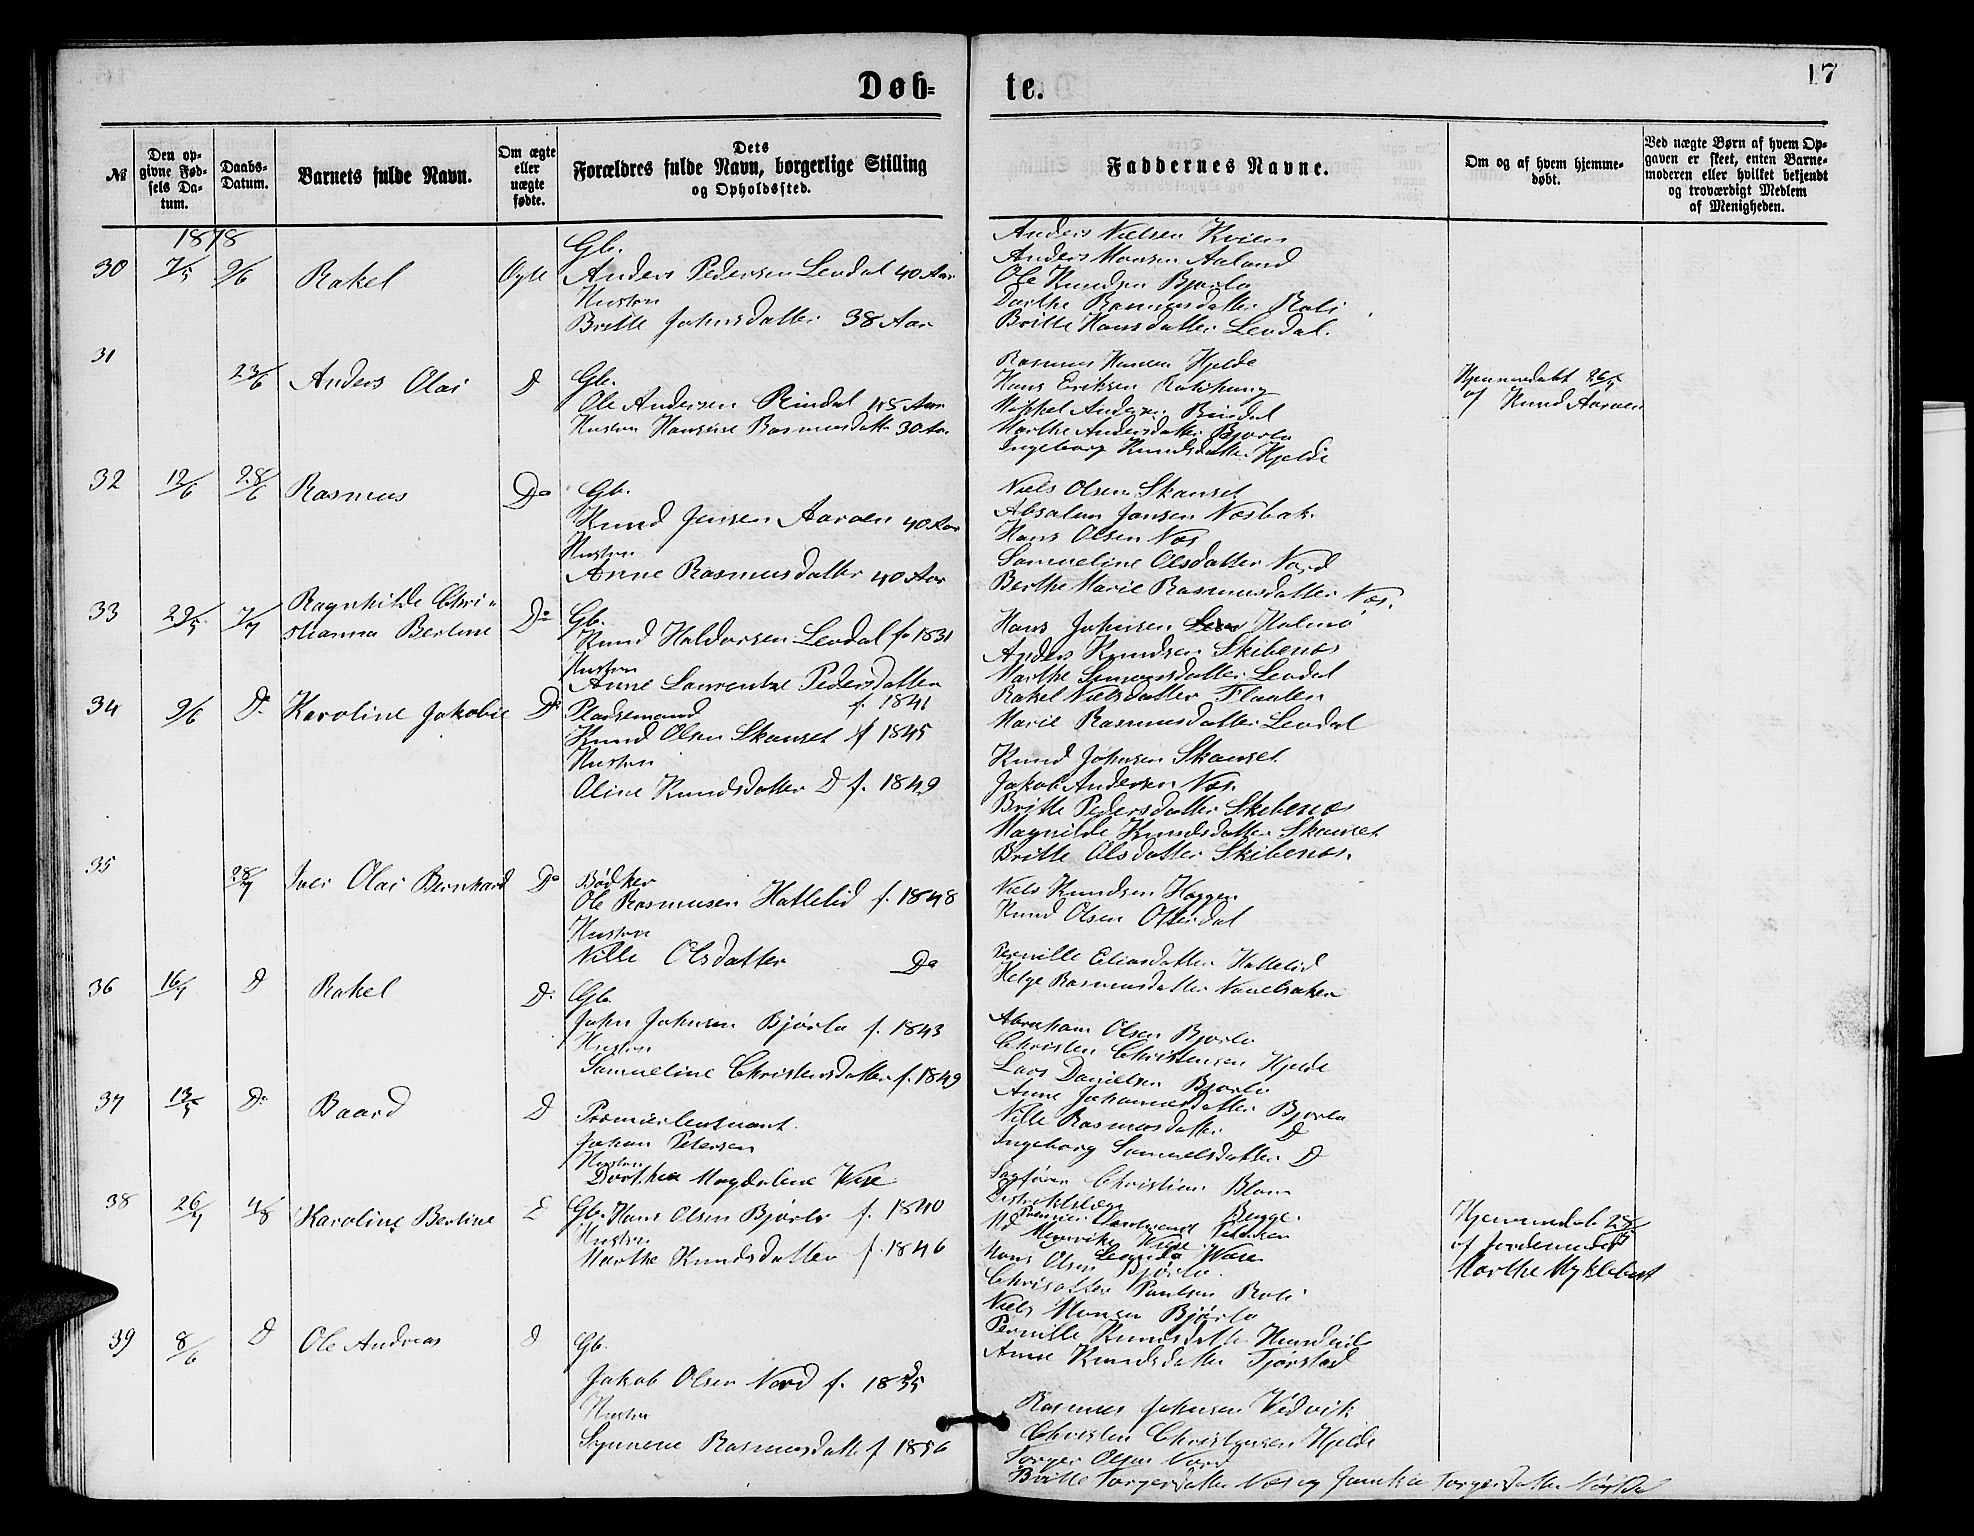 Døb-
te.
17
№
Den op-
givne Fød-
sels Da-
tum.
Daabs-
Datum.
Barnets fulde Navn.
Om ægte
eller
uægte
fødte.
Dets
Forældres fulde Navn, borgerlige Stilling
og Opholdssted.
Faddernes Navne.
Om og af hvem hjemme-
døbt.
Ved uægte Børn af hvem Op-
gaven er skeet, enten Barne-
moderen eller hvilket bekjendt
og troværdigt Medlem
af Menigheden.
1878
30 7/5 9/6 Rakel Ægte
Gb.
Anders Pedersen Levdal 40 Aar
Hustru
Britte Johnsdatter 38 Aar
Anders Nielsen
Anders Monsen Aaland
Ole Knudsen Bjørlo
Dorthe Rasmusdatter Roti
Britte Hansdatter Levdal.
31 23/6 Anders Olai D
Gb.
Ole Andersen Rindal 45 Aar
Hustru Hansine Rasmusdatter 30 Aar
Rasmus Hansen Hjelde
Hans Eriksen
Mikkel Andersen Rindal
Marthe Andersdatter Bjørlo
Ingeborg Knudsdatter Hjelde
Hjemmedøbt 26/5
af Knud Aarøen
32 12/6 28/6 Rasmus Do
Gb.
Knud Jensen Aarøen 40 Aar
Hustru
Anne Rasmusdatter 40 Aar
Niels Olsen Skanset
Absalon Jansen Næsbak
Hans Olsen Næs
Samueline Olsdatter Nord
Berthe Marie Rasmusdatter Næs.
33 29/5 7/7 Ragnhilde Chri-
stianna Bertine Do
Gb.
Knud Haldorsen Levdal f. 1831
Hustru
Anne Laurentze Pedersdatter
f. 1841
Hans Johnsen Holmø
Anders Knudsen Skibenæs
Marthe Simonsdatter Levdal
Rakel Nielsdatter Flaaten
Marie Rasmusdatter Levdal
34 9/6 D. Karoline Jakobie Do
Pladsemand
Knud Olsen Skanset f 1845
Hustru
Oline Knudsdatter D f. 1849
Knud Johnsen Skanset
Jakob Andersen Næs.
Britte Pedersdatter Skibenæs
Magnilde Knudsdatter Skanset
Britte Olsdatter Skibenæs.
35 28/7 Iver Olai Bernhard Do
Bødker
Ole Rasmusen Hatlelid f. 1848
Hustru
Nille Olsdatter Do
Niels Knudsen Haggen
Knud Olsen Otterdal
Pernille Eliasdatter Hatlelid
Helge Rasmusdatter
36 16/7 D Rakel D.
Gb.
John Johnsen Bjørlo f. 1843
Hustru
Samueline Christensdatter f. 1849
Abraham Olsen Bjørlo
Christen Christensen Hjelde
Lars Danielsen Bjørlo
Anne Johannesdatter Bjørlo
Nille Rasmusdatter D
Ingeborg Samuelsdatter D
37 13/5 Do Baard D
Premierleutnant.
Johan Petersen
Hustru
Dorthea Magdalene Wiese
Sagfører Christian Blom
Distriktslæge Bugge.
38 26/7 4/8 Karoline Bertine E
Gb. Hans Olsen Bjørlo f. 1840
Hustru
Marthe Knudsdatter f. 1846
Hans Olsen Bjørlo.
Paulsen Roti
Niels Monsen Bjørlo
Pernille Knudsdatter Hundeide
Anne Knudsdatter Tjørstad
Hjemmedøbt 28/7
af Jordemoder
Marthe Myklebust
39 8/6 D Ole Andreas D
Gb.
Jakob Olsen Nord f. 1835
Hustru
Synneve Rasmusdatt f 1856
Rasmus Johnsen Vedvik
Christen Christensen Hjelde
Torger Olsen Nord
Britte Torgersdatter Næs og